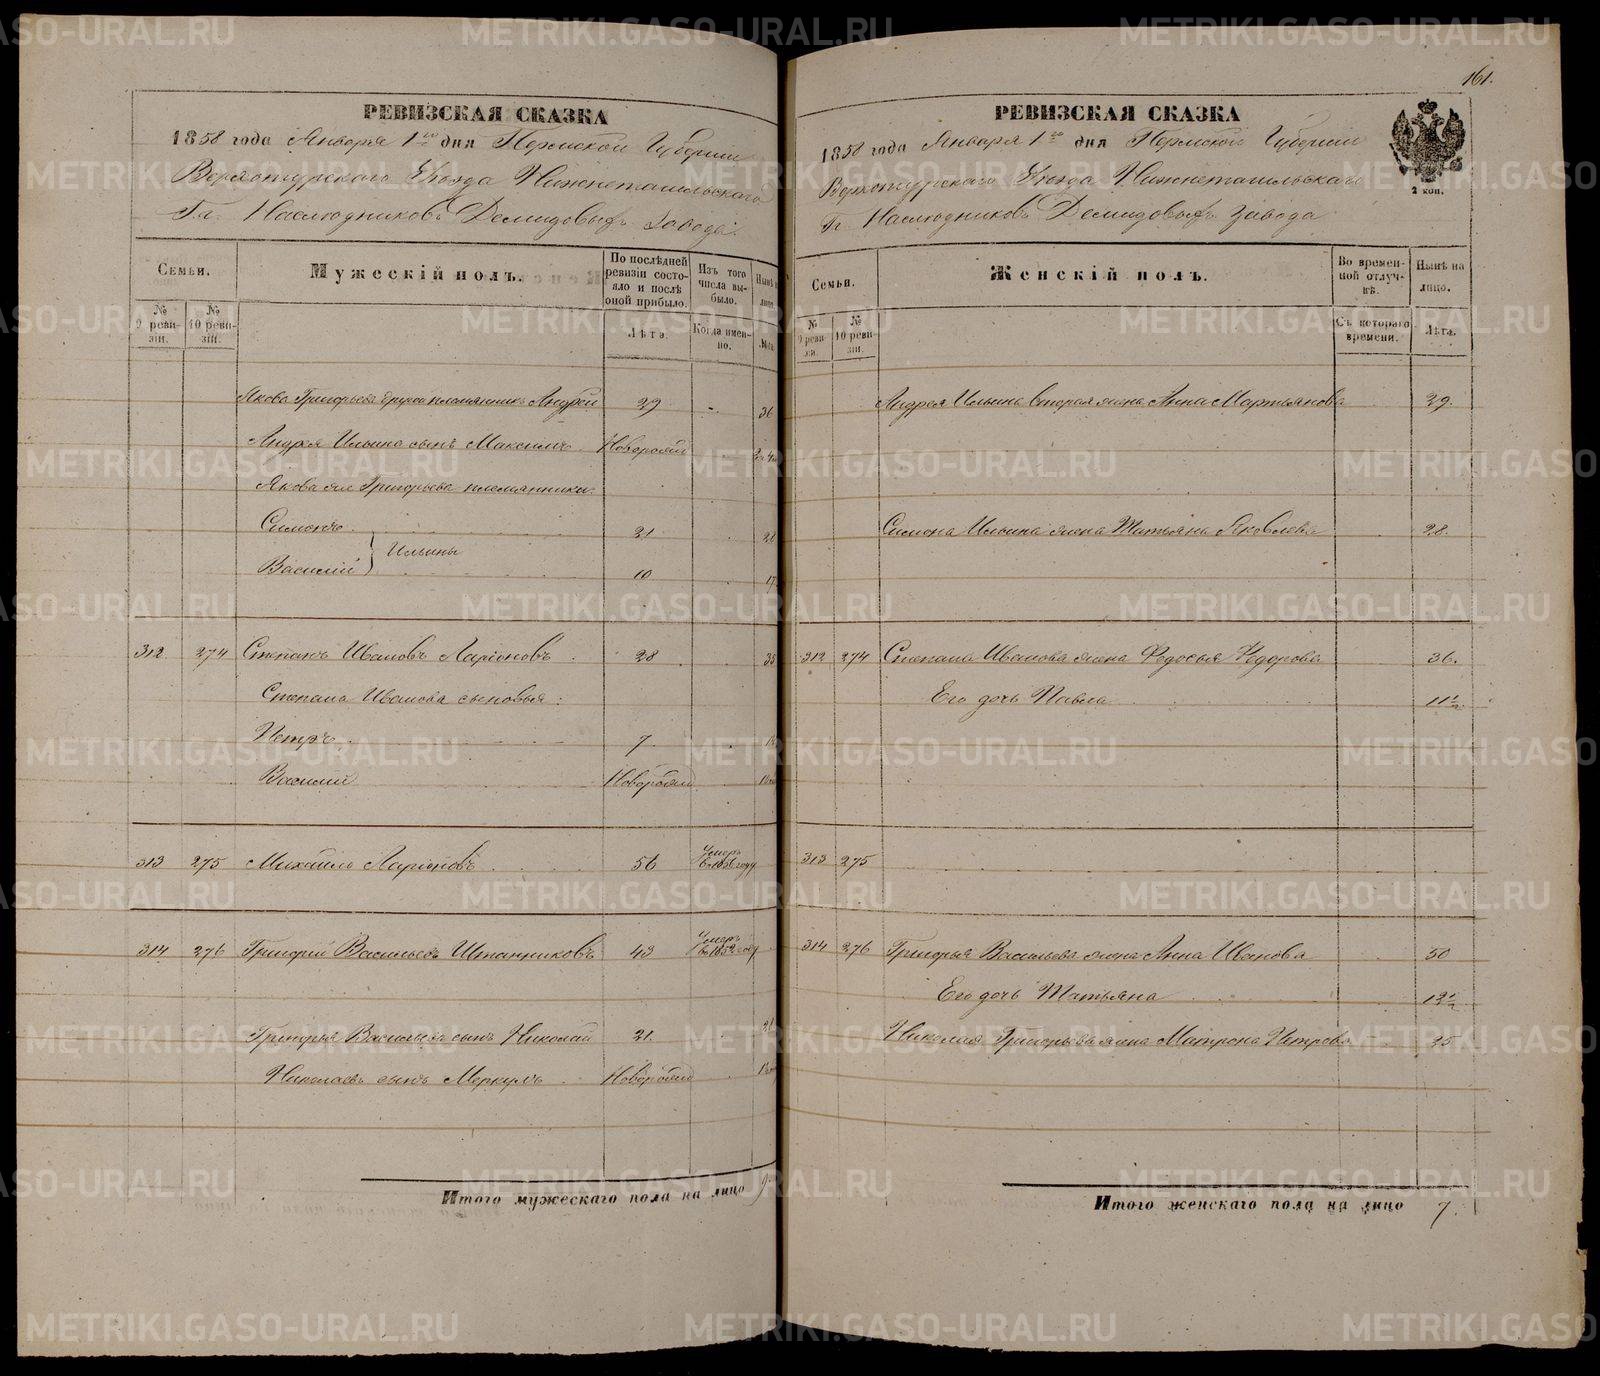 РЕВИЗСКАЯ СКАЗКА
1858 года Января 1го дня Пермской Губернiи
Верхотурскаго Уѣзда Нижнетагильскаго
Гг. Наслѣдниковъ Демидовыхъ завода.
Семьи.
Мужескiй полъ.
По послѣдней ревизiи состояло и послѣ оной прибыло.
Изъ того числа выбыло.
Нынѣ
лицо.
№ 9 ревизiи.
№ 10 ревизiи.
Лѣта.
Когда именно.
Якова Григорьева другой племянникъ Андрей 29 36
Андрея Ильина сынъ Максимъ Новорожд
Якова же Григорьева племянники:
Симонъ 21 28
Ильины
Василiй 10 17
312 274 Степанъ Ивановъ Ларiоновъ 28 35
Степана Иванова сыновья:
Петръ 7
Василiй Новорожд
313 275 Михайло Ларiоновъ 56 Умеръ въ 1856 году
314 276 Григорiй Васильевъ Штанниковъ 43 Умеръ въ 1852 году
Григорья Васильева сынъ Николай 21
Николаевъ сынъ Меркулъ Новорожд
Итого мужескаго пола на лицо 9
161.
РЕВИЗСКАЯ СКАЗКА
1858 года Января 1го дня Пермской Губернiи
Верхотурскаго Уѣзда Нижнетагильскаго
Гг. Наслѣдниковъ Демидовыхъ завода
2 коп.
Семьи.
Женскiй полъ.
Во временной отлучкѣ.
Нынѣ на лицо.
№ 9 ревизiи.
№ 10 ревизiи.
Съ котораго времени.
Лѣта.
Андрея Ильина вторая жена Анна Мартьянова 29.
Симона Ильина жена Татьяна Яковлева 28.
312 274 Степана Иванова жена Федосья Федорова 36.
Его дочь Павла 11½
313 275
314 276 Григорья Васильева жена Анна Иванова 50
Его дочь Татьяна 12½
Николая Григорьева жена Матрена Петрова 25
Итого женскаго пола на лицо 7
METRIKI.GASO-URAL.RU